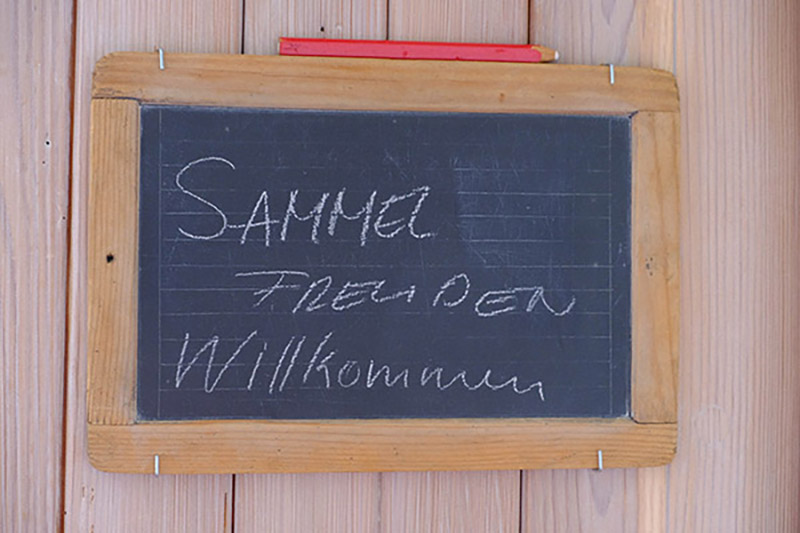 SAMMEL
FREUDEN
Willkommen